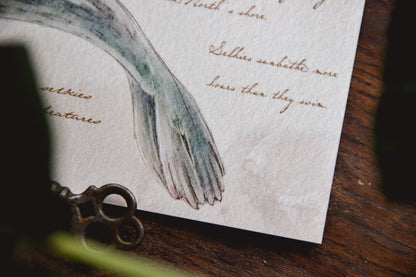 North's shore
Selkies sunbathe more
hours than they swim
selkies
features